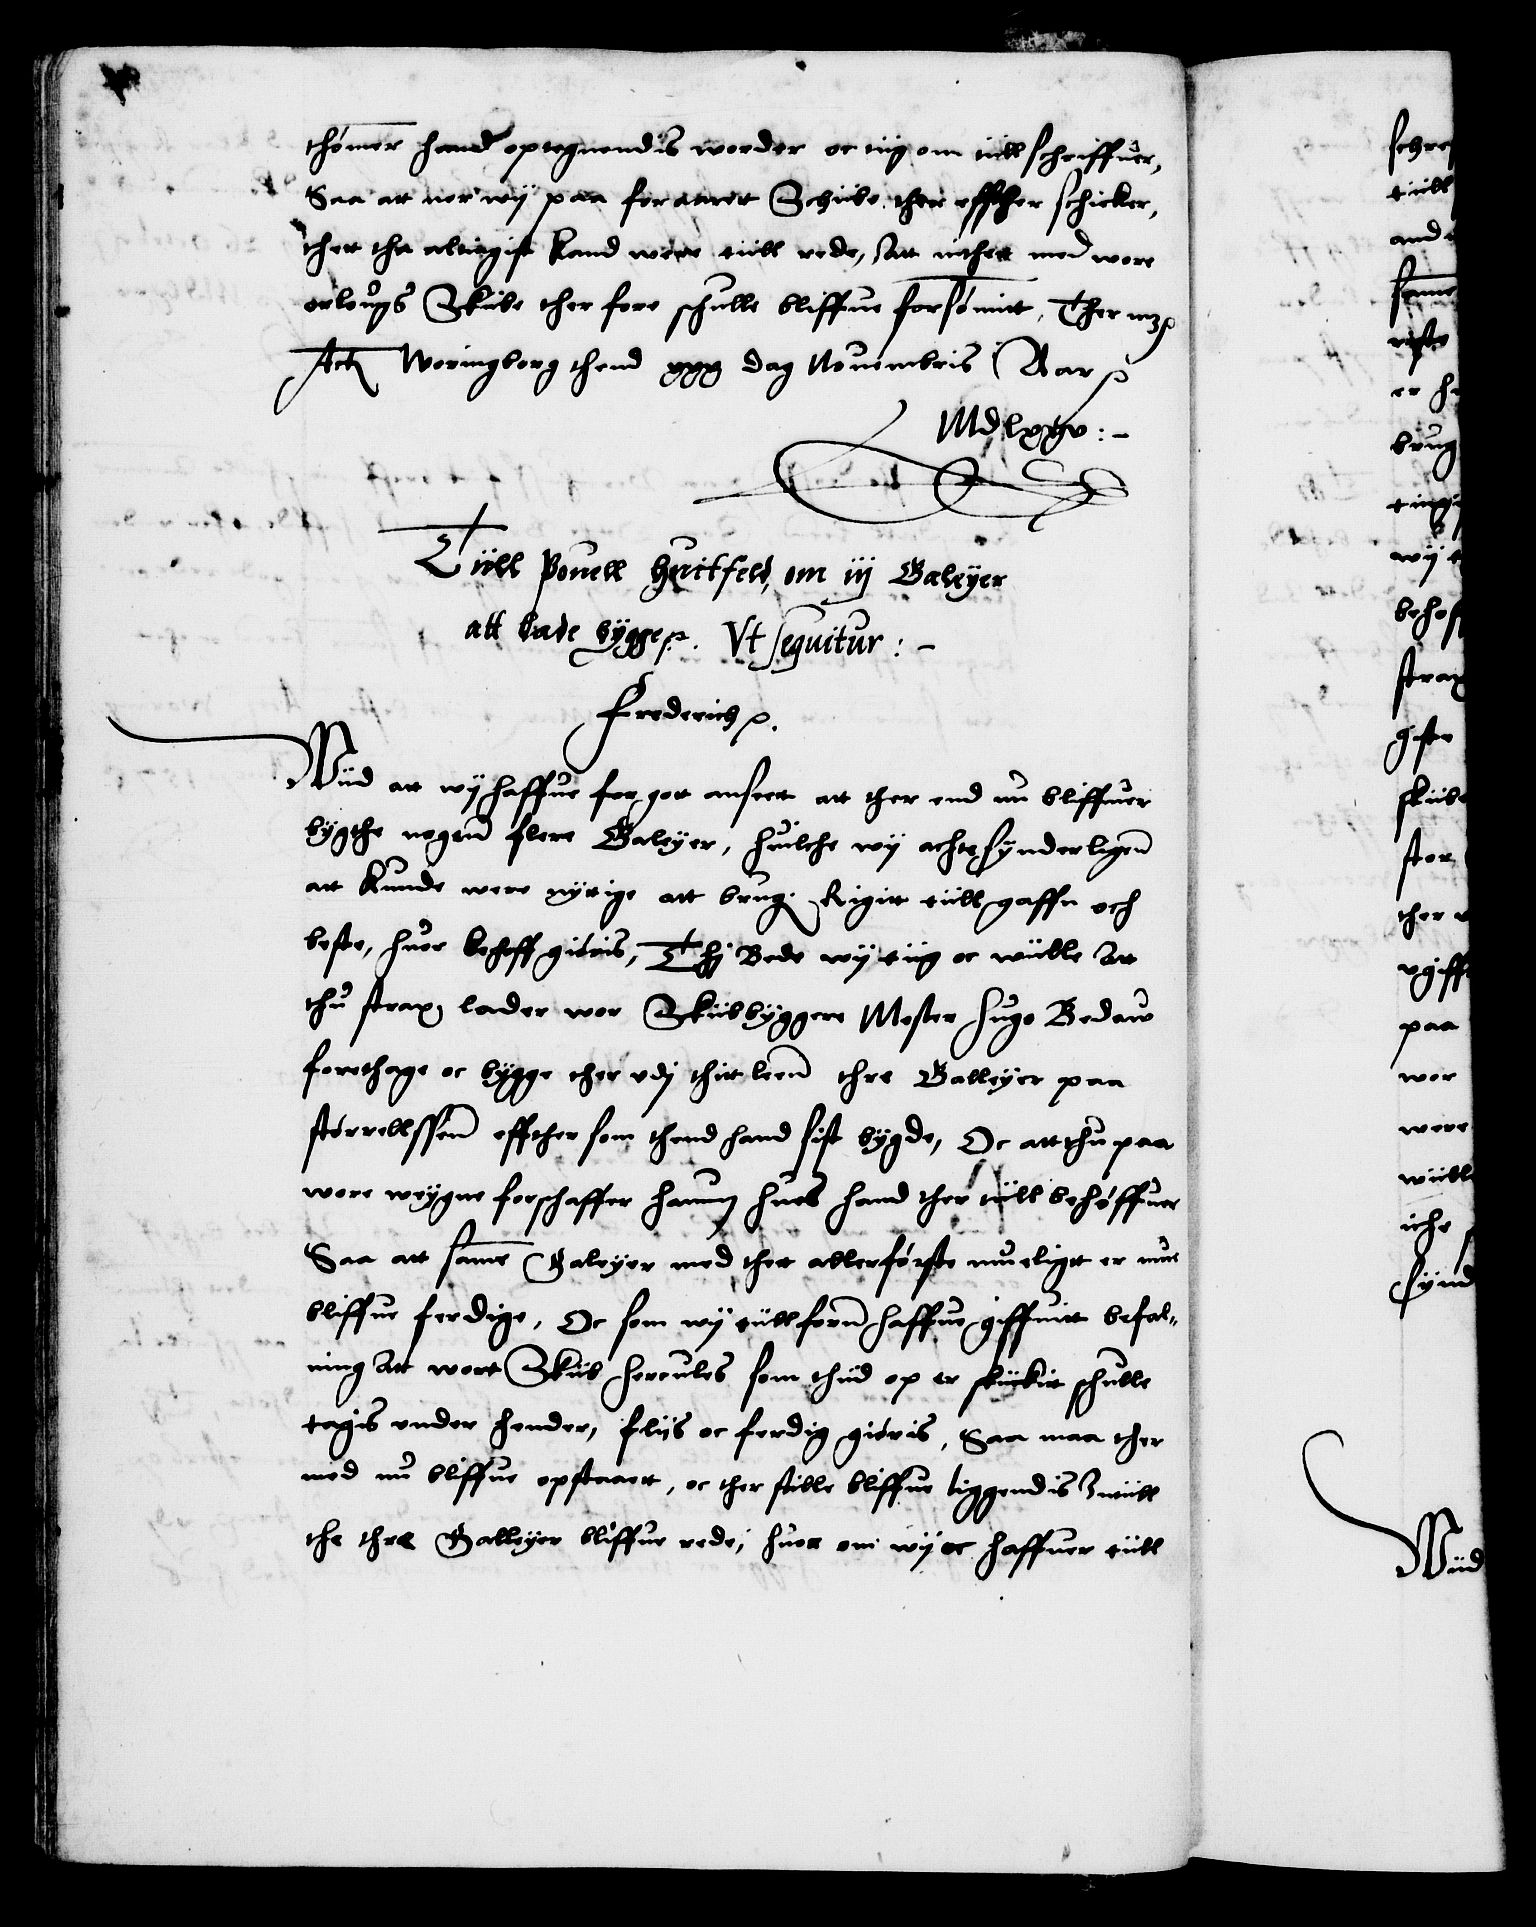 thømer hand optegnendis worder oc tiig om tiill schriffuer,
Saa att ner wij paa foraarett Schibe ther effther schicker,
thett tha altiegist kand were tiill rede, Satt icthett med wore
orlougs Skibe ther fore schulle bliffue forsømit, Ther mz
Act Woringborg thend xxx dag Nouembris Aar
Mdlxxv :-
Tiill Pouell Huitfeld, om iij Galeyer
att lade bygge. Vt sequitur :-
Frederich
Wiid att wij haffue for gott anseett att ther end nu bliffuer
bygthe nogen flere Galeyer, huilche wij achte synderligen
att kunde were nyttige att brug. Rigitt tiill gaffn och
beste, huor behoff giøris, Thj Bede wij tiig oc wiille Att
thu strax lader wor Skiibbyggere Mester Hugo Bedaw
forethage oc bygge ther vdj thit leen thre Galleyer paa
størrellssen effther som thend hand sist bygde, Oc att thu paa
wore weygne forschaffer hanum hues hand ther tiill behøffuer
Saa att same Galeyer med thet allerførste mueligtt er mue
bliffue ferdige, Oc som wij tiillforn haffue giffuitt befal„
ning Att wort Skiib Hercules som thiid op er skickit schulle
tagis vnder hender, fliis oc ferdig giøris, Saa maa ther
med nu bliffue opstaaett, oc ther stille bliffue liggendis Intiill
the thre Galleyer bliffue rede, huor om wij oc haffuer tiill